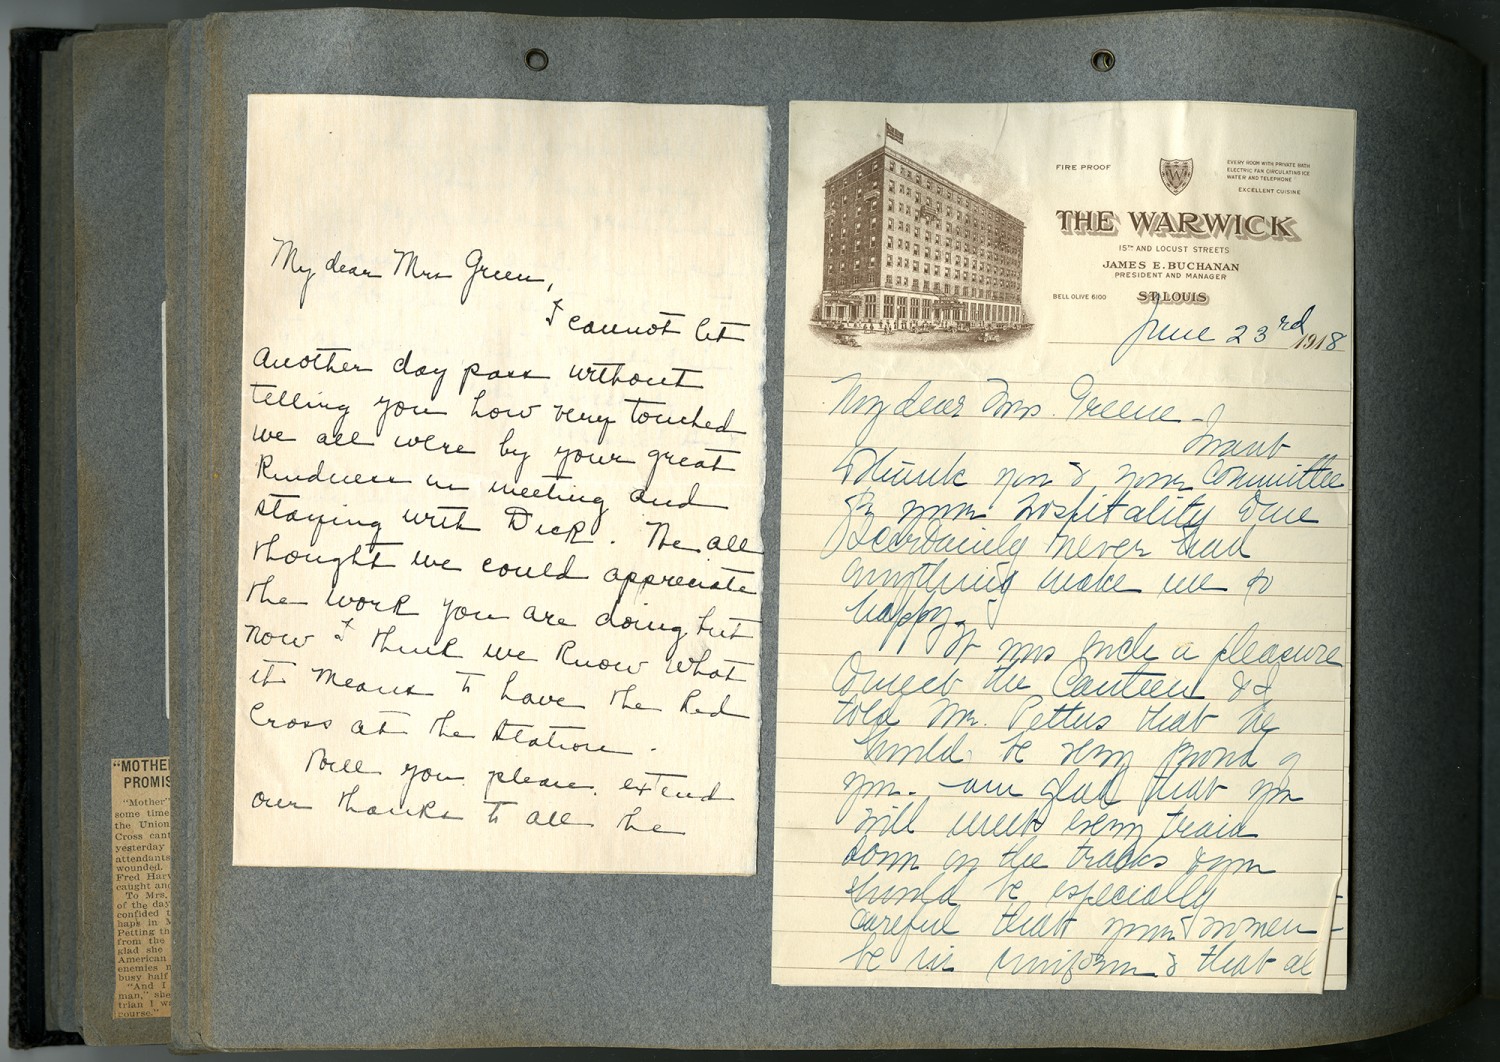 My dear Mrs Green,
I cannot let
another day pass without
telling you how very touched
we all were by your great
kindness in meeting and
staying with Dick. We all
thought we could appreciate
the work you are doing but
now I think we know what
it means to have the Red
Cross at the station.
Will you please extend
our thanks to all the
FIRE PROOF
EVERY ROOM WITH PRIVATE BATH
ELECTRIC FAN CIRCULATING ICE
WATER AND TELEPHONE
EXCELLENT CUISINE
W
THE WARWICK
15TH AND LOCUST STREETS
JAMES E. BUCHANAN
PRESIDENT AND MANAGER
BELL OLIVE 6100
ST. LOUIS
June 23rd 1918
My dear Mrs. Greene - I
want
to thank you & your Committee
for your hospitality to me
certainly never had
anything make me so
happy.
It was such a pleasure
to meet the Canteen & I
told Mr. Pettus that he
should be very proud of
you. - am glad that you
will meet every train
down on the tracks & you
should be especially
careful that your women -
be in uniform & that al
"MOTHE
PROMIS
"Mother"
some time
the Union
Cross cant
yesterday
attendants
wounded.
Fred Harv
caught and
To Mrs.
of the day
confided t
haps in M
Petting th
from the
glad she
American
enemies n
busy half
"And I
man," she
trian I w
course."